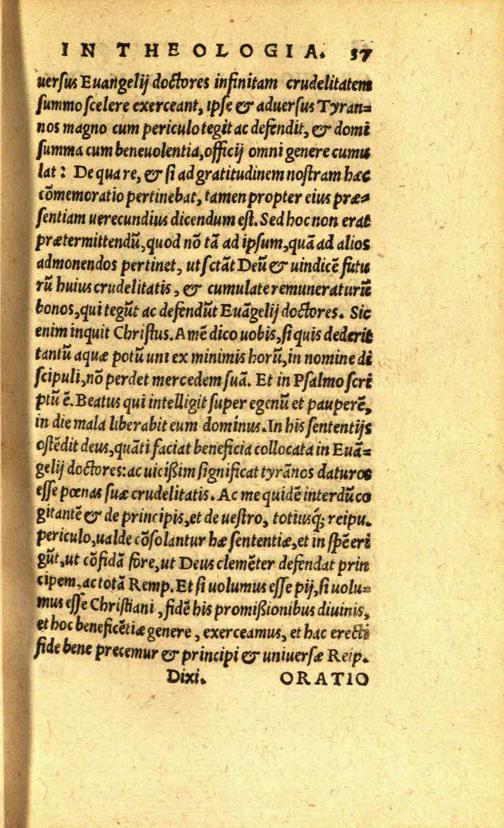 IN THEOLOGIA. 57
uersus Euangelij doctores infinitam crudelitatem
summo scelere exerceant, ipse & aduersus Tyran=
nos magno cum periculo tegit ac defendit, & domi
summa cum beneuolentia, officij omni genere cumu
lat: De qua re, & si ad gratitudinem nostram hæc
cõmemoratio pertinebat, tamen propter eius præ=
sentiam uerecundius dicendum est. Sed hoc non erat
prætermittendũ, quod nõ tã ad ipsum, quã ad alios
admonendos pertinet, ut sciãt Deũ & uindicẽ futu
rũ huius crudelitatis, & cumulate remuneraturũ
bonos, qui tegũt ac defendũt Euãgelij doctores. Sic
enim inquit Christus. Amẽ dico uobis, si quis dederit
tantũ aquæ potũ uni ex minimis horũ, in nomine di
scipuli, nõ perdet mercedem suã. Et in Psalmo scri
ptũ ẽ. Beatus qui intelligit super egenũ et pauperẽ,
in die mala liberabit eum dominus. In his sententijs
ostẽdit deus, quãti faciat beneficia collocata in Euã=
gelij doctores: ac uicißim significat tyrãnos daturos
esse pœnas suæ crudelitatis. Ac me quidẽ interdũ co
gitantẽ & de principis, et de uestro, totiusq; reipu.
periculo, ualde cõsolantur hæ sententiæ, et in spẽ eri
gũt, ut cõfidã fore, ut Deus clemẽter defendat prin
cipem, ac totã Remp. Et si uolumus esse pij, si uolu=
mus esse Christiani, fidẽ his promißionibus diuinis,
et hoc beneficẽtiæ genere, exerceamus, et hac erecti
fide bene precemur & principi & uniuersæ Reip.
Dixi. ORATIO